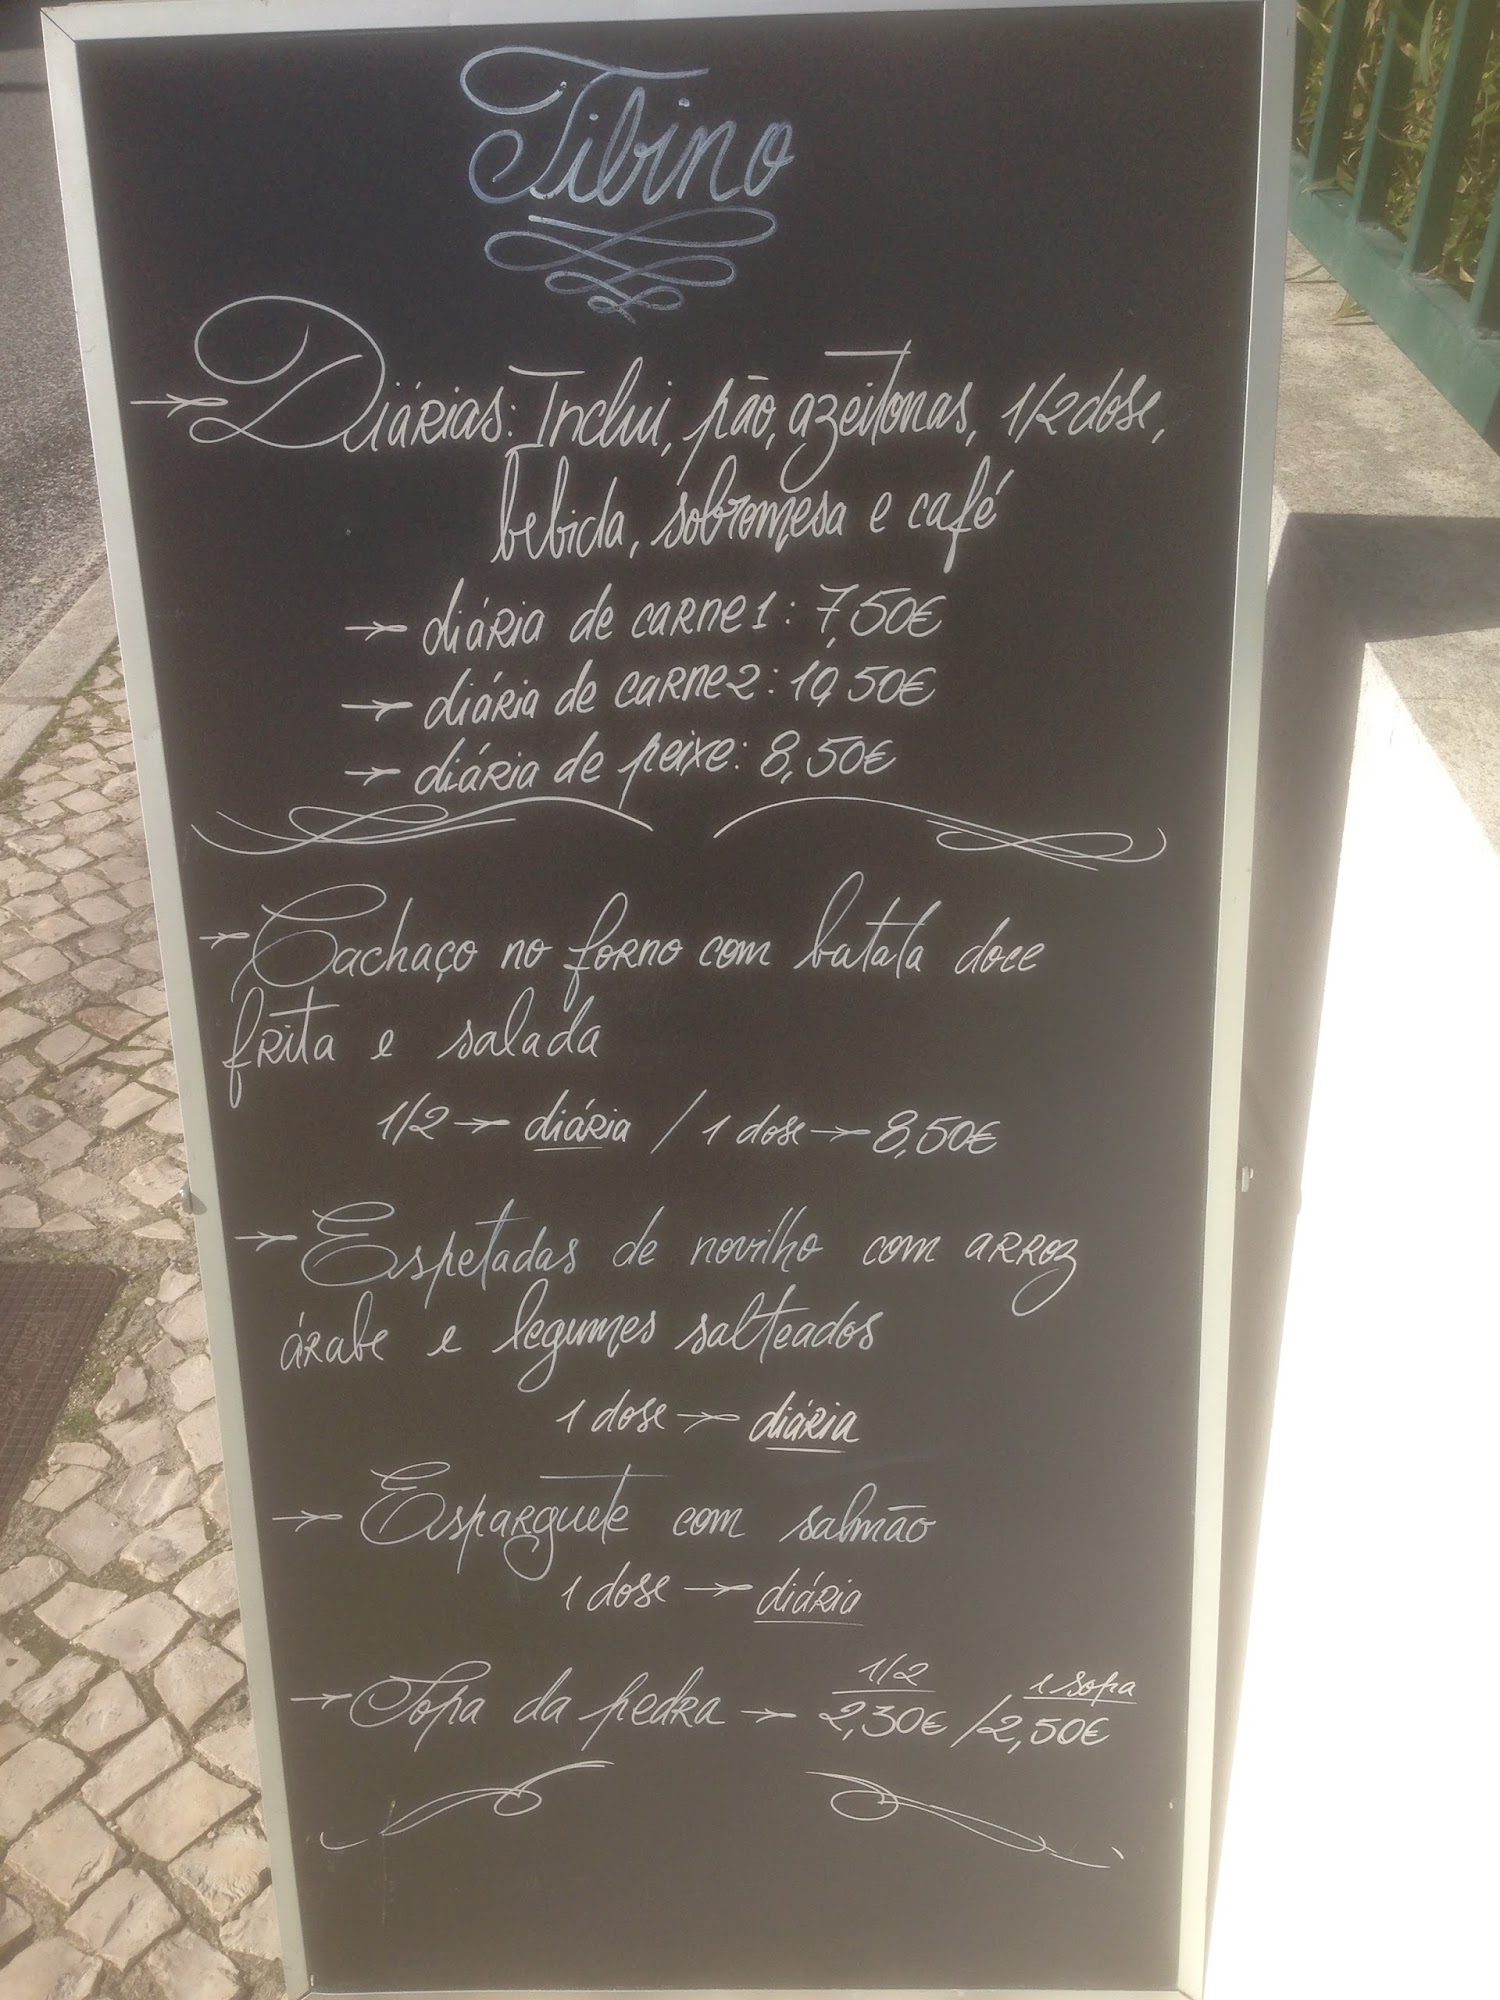 Tibino
Diárias: Inclui, pão, azeitonas, 1/2 dose,
bebida, sobremesa e café
diária de carne 1: 7,50€
diária de carne 2: 10,50€
diária de peixe: 8,50€
Cachaço no forno com batata doce
frita e salada
1/2 → diária / 1 dose → 8,50€
Espetadas de novilho com arroz
árabe e legumes salteados
1 dose → diária
Esparguete com salmão
1 dose → diária
1/2 1 sopa
Sopa da pedra → 2,30€ / 2,50€